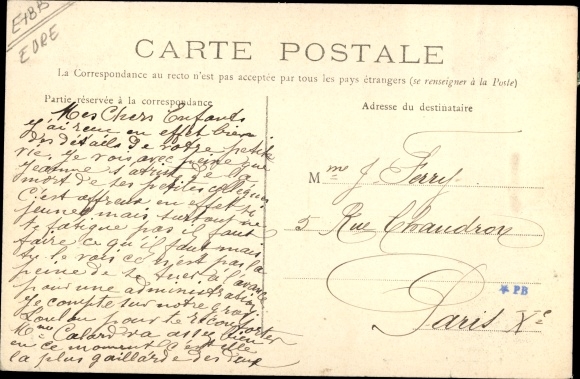 E1815
EURE
CARTE POSTALE
La Correspondance au recto n'est pas acceptée par tous les pays étrangers (se renseigner à la Poste)
Partie réservée à la correspondance
Adresse du destinataire
Mes Chers Enfants
J'ai reçu en effet bien
des détails de votre petite
vie. Je vois avec peine que
Jeanne s'attriste de la
mort de ses petites collègues
C'est affreux en effet si
jeunes mais surtout ne
te fatigue pas il faut
faire ce qu'il faut mais
tu le vois ce n'est pas la
peine de te tuer à l'avance
pour une administration
Je compte sur notre gros
Loulou pour te réconforter
Mme va assez bien
en ce moment c'est elle
la plus gaillarde des deux
Mme J. Ferry
5 Rue Chaudron
Paris Xe
PB